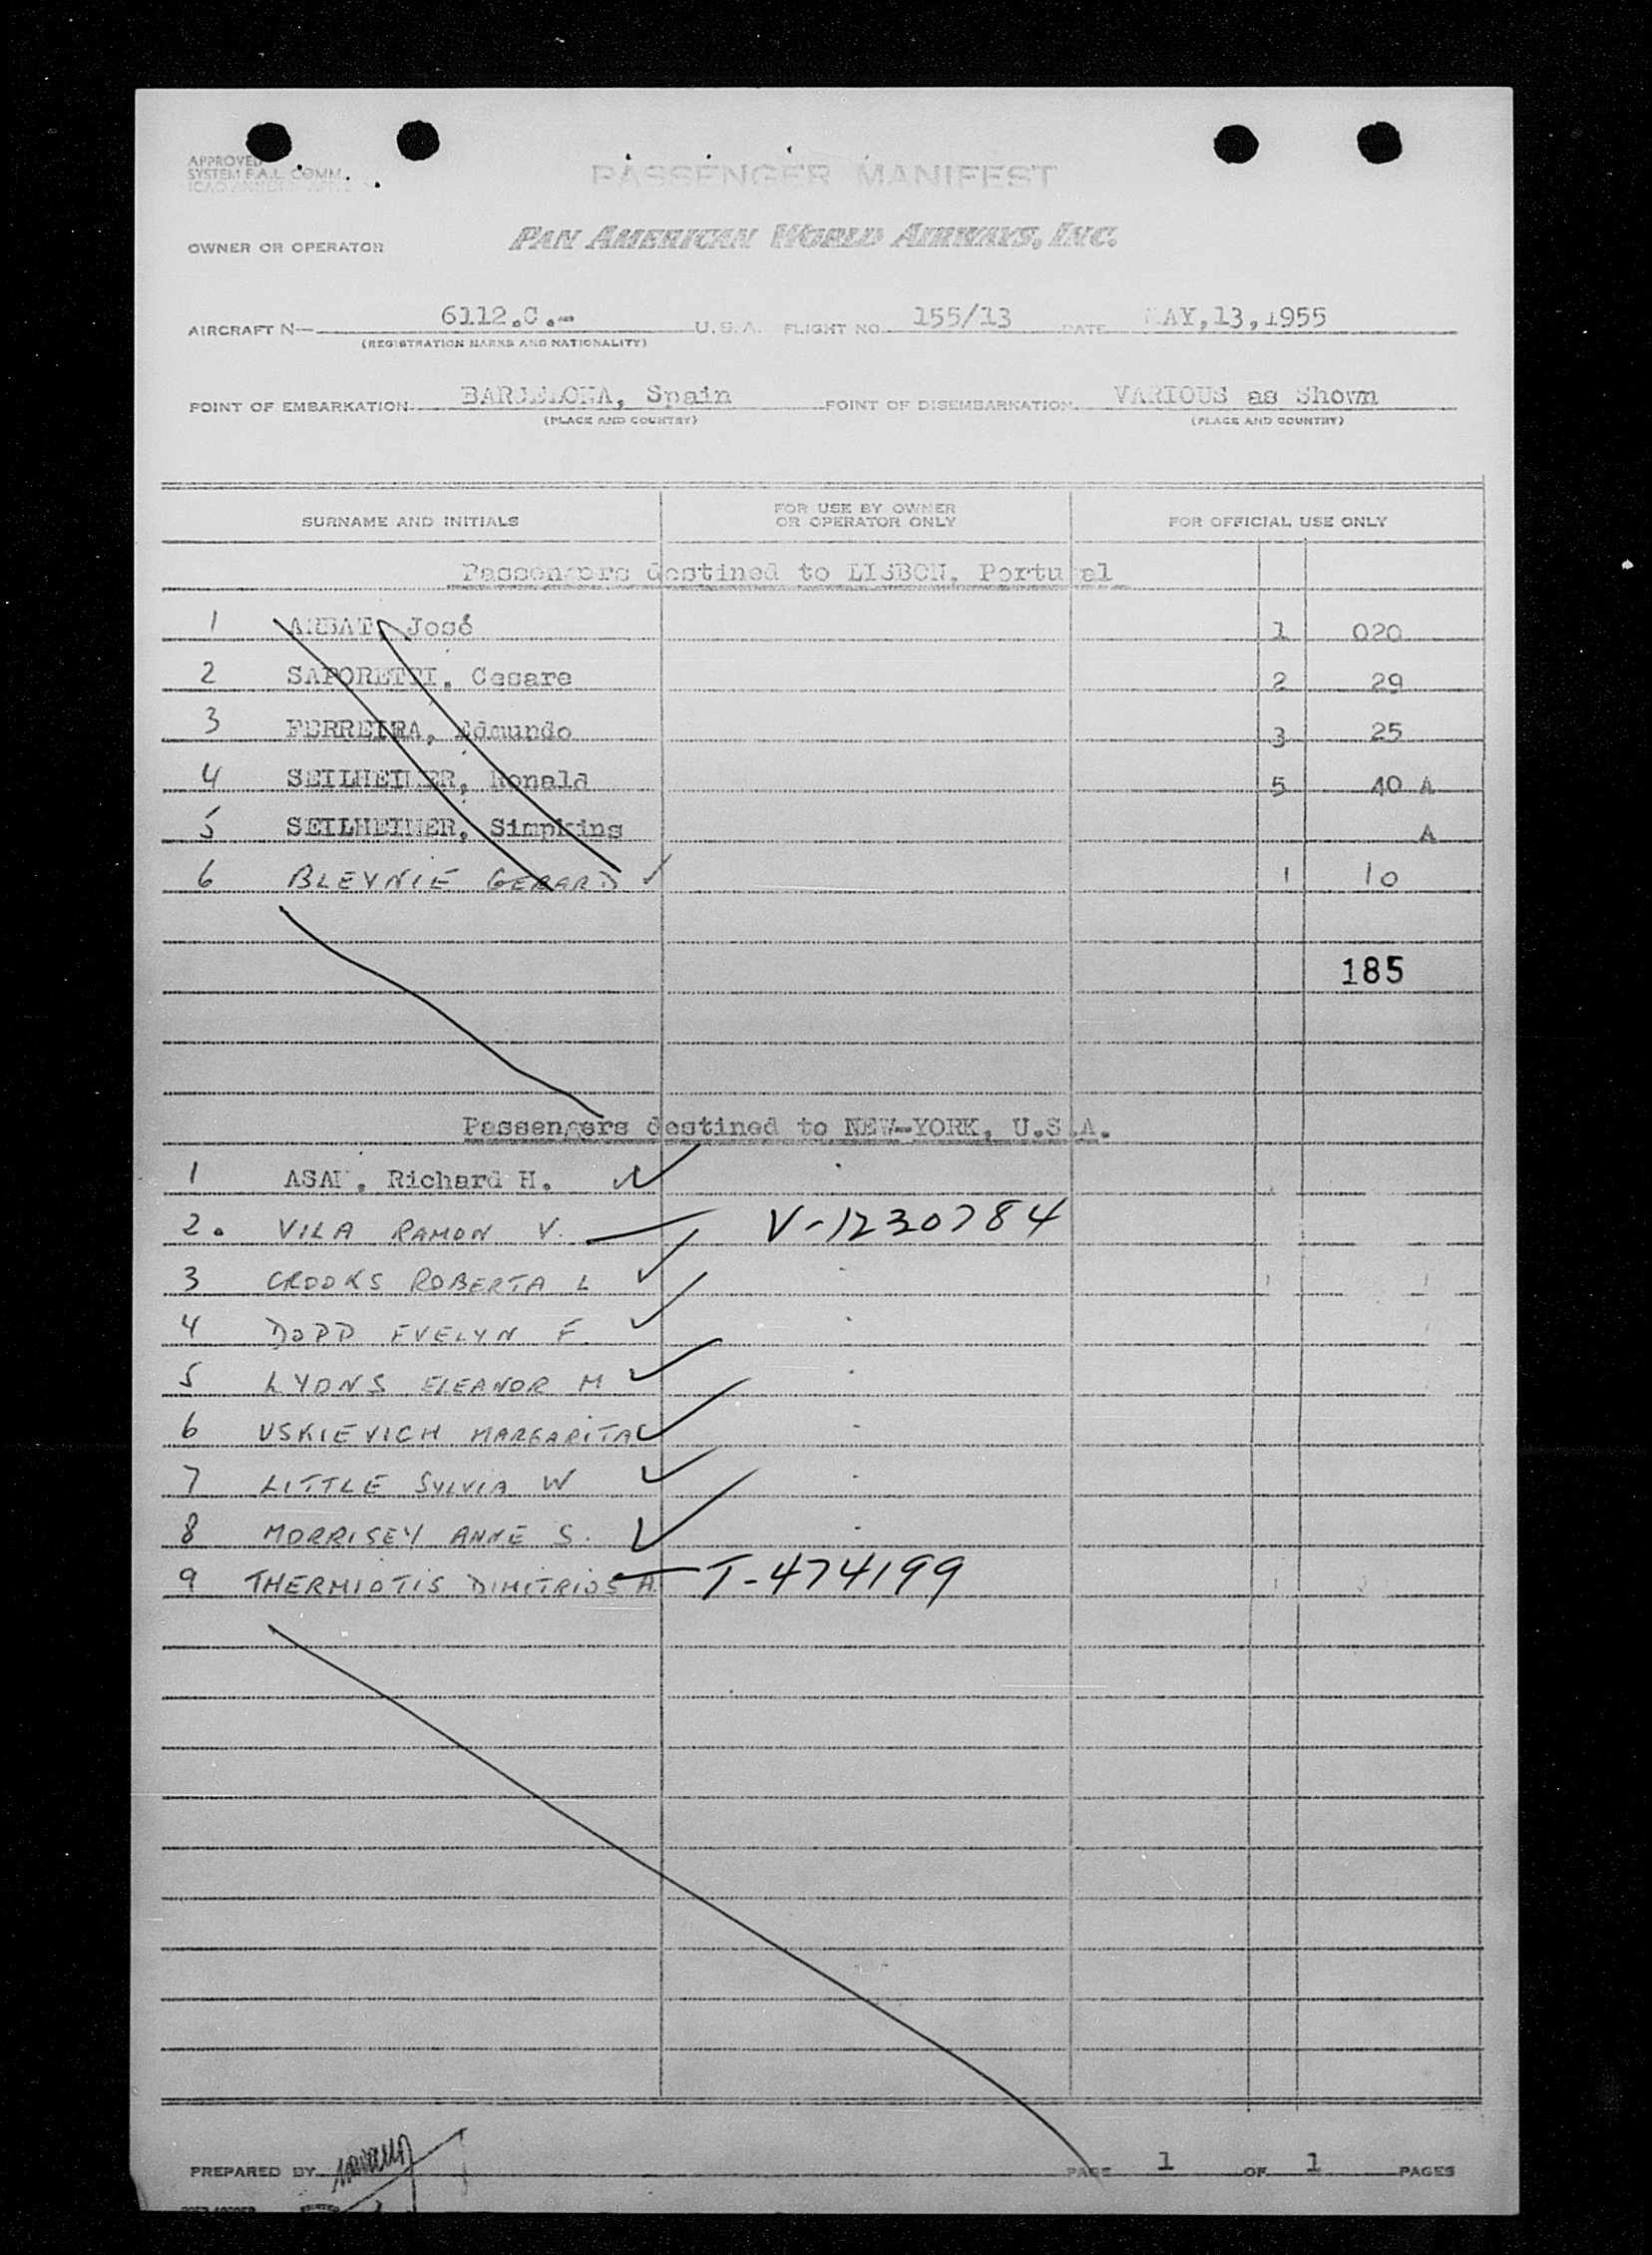 APPROVED
SYSTEM F.A.L. COMM.
PASSENGER MANIFEST
OWNER OR OPERATOR PAN AMERICAN WORLD AIRWAYS, INC.
AIRCRAFT N— 6112.C.- U.S.A. FLIGHT NO. 155/13 DATE MAY,13,1955
(REGISTRATION MARKS AND NATIONALITY)
POINT OF EMBARKATION BARCELONA, Spain POINT OF DISEMBARKATION VARIOUS as Shown
(PLACE AND COUNTRY) (PLACE AND COUNTRY)
SURNAME AND INITIALS FOR USE BY OWNER OR OPERATOR ONLY FOR OFFICIAL USE ONLY
Passengers destined to LISBON, Portugal
1 José 1 020
2 SAPORETTI, Cesare 2 29
3 FERREIRA, Edmundo 3 25
4 SEILHEIMER, Ronald 5 40 A
5 SEILHEIMER, Simpkins A
6 BLEYNIE GERARD ✓ 1 10
185
Passengers destined to NEW-YORK, U.S.A.
1 Richard H. ✓
2. VILA RAMON V. — V-1230784
3 CROOKS ROBERTA L ✓
4 DODD EVELYN F. ✓
5 LYONS ELEANOR M ✓
6 USKIEVICH MARGARITA ✓
7 LITTLE SYLVIA W ✓
8 MORRISEY ANNE S. ✓
9 THERMIOTIS DIMITRIOS A. — T-474199
PREPARED BY PAGE 1 OF 1 PAGES